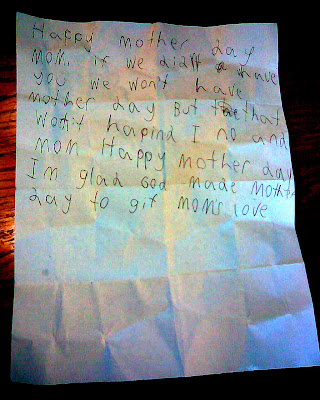 Happy mother day
mom, if we didn't have
you we won't have
mother day But that
won't hapind I no and
mom Happy mother day
I'm glad God made mother
day to git mom's love